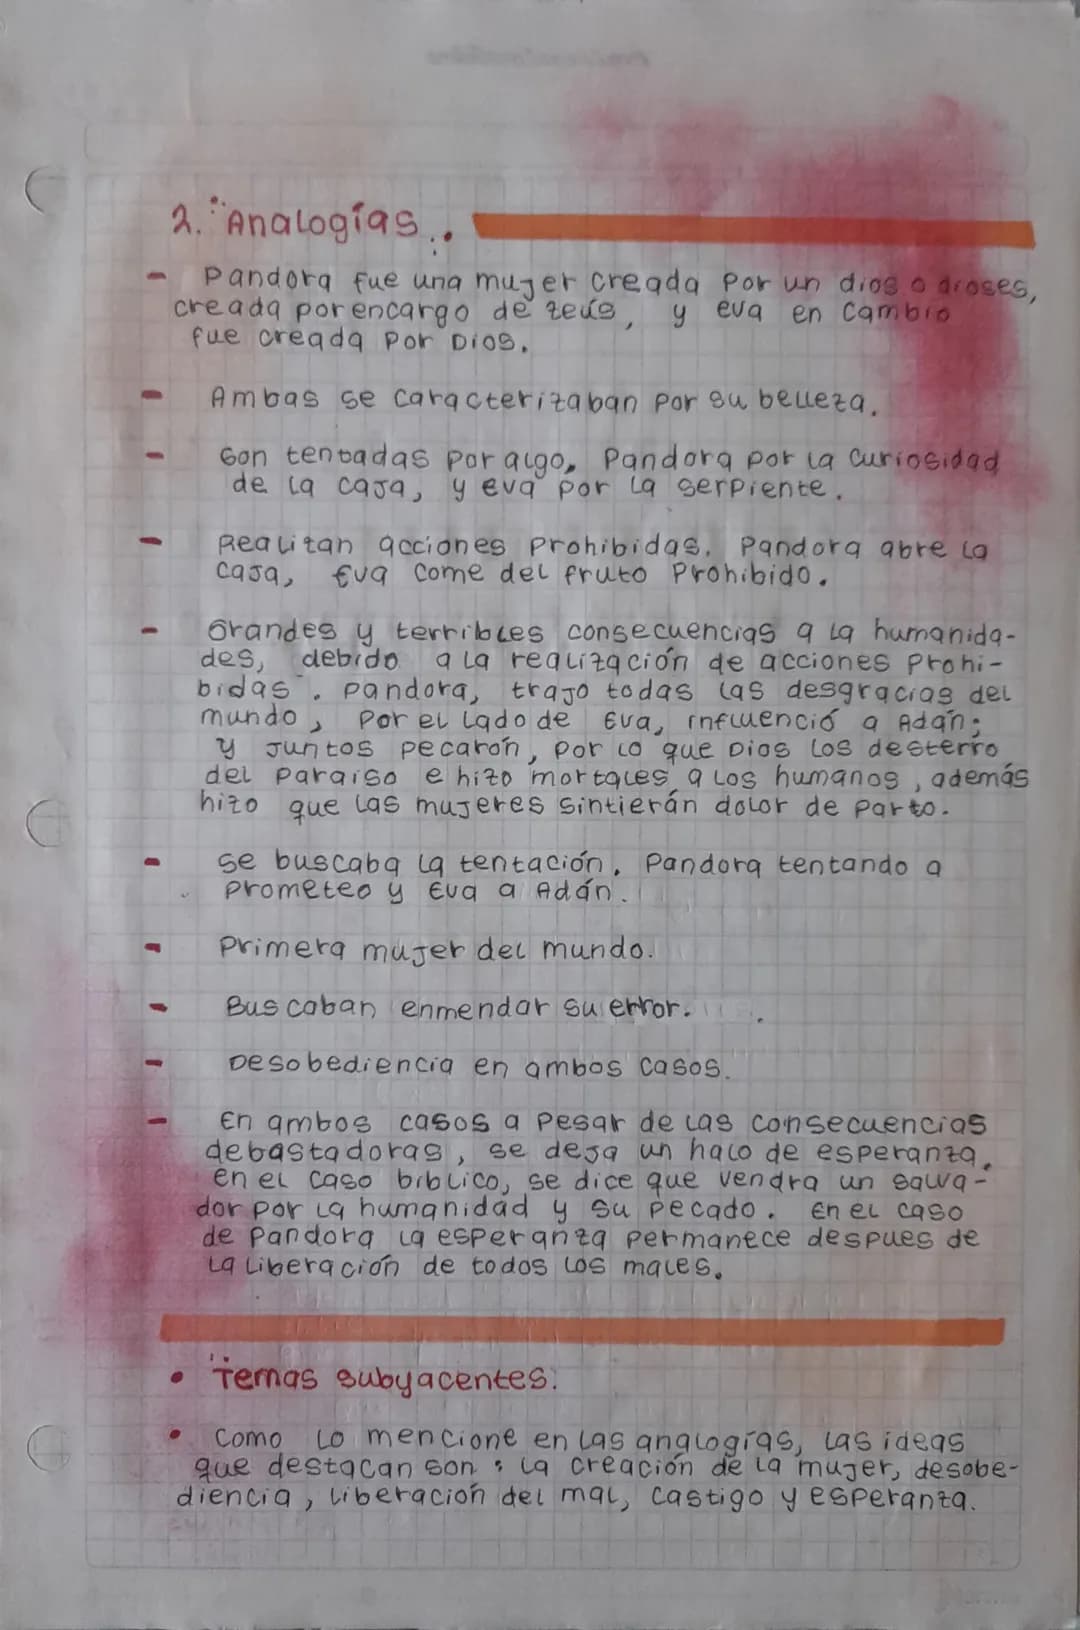 2. Analogías.
- Pandora fue una mujer creada por un dios o dioses,
creada por encargo de zeús, y eva en cambio
fue creada por Dios.
- Ambas se caracterizaban por su belleza.
- Son tentadas por algo, Pandora por la curiosidad
de la caja, y eva por la serpiente.
- Realizan acciones prohibidas. Pandora abre la
caja, Eva come del fruto Prohibido.
- Grandes y terribles consecuencias a la humanida-
des, debido a la realización de acciones prohi-
bidas. pandora, trajo todas las desgracias del
mundo, por el lado de Eva, influenció a Adán;
y juntos pecarón, por lo que Dios los desterro
del paraiso e hizo mortales a los humanos, además
hizo que las mujeres sintierán dolor de parto.
- se buscaba la tentación. Pandora tentando a
prometeo y Eva a Adán.
- Primera mujer del mundo.
- Buscaban enmendar su error.
- Desobediencia en ambos casos.
- En ambos casos a pesar de las consecuencias
debastadoras, se deja un halo de esperanza,
en el caso bíblico, se dice que vendra un salva-
dor por la humanidad y su pecado. En el caso
de Pandora la esperanza permanece despues de
la liberación de todos los males.
• Temas subyacentes:
• Como lo mencione en las analogías, las ideas
que destacan son: la creación de la mujer, desobe-
diencia, liberación del mal, castigo y esperanza.